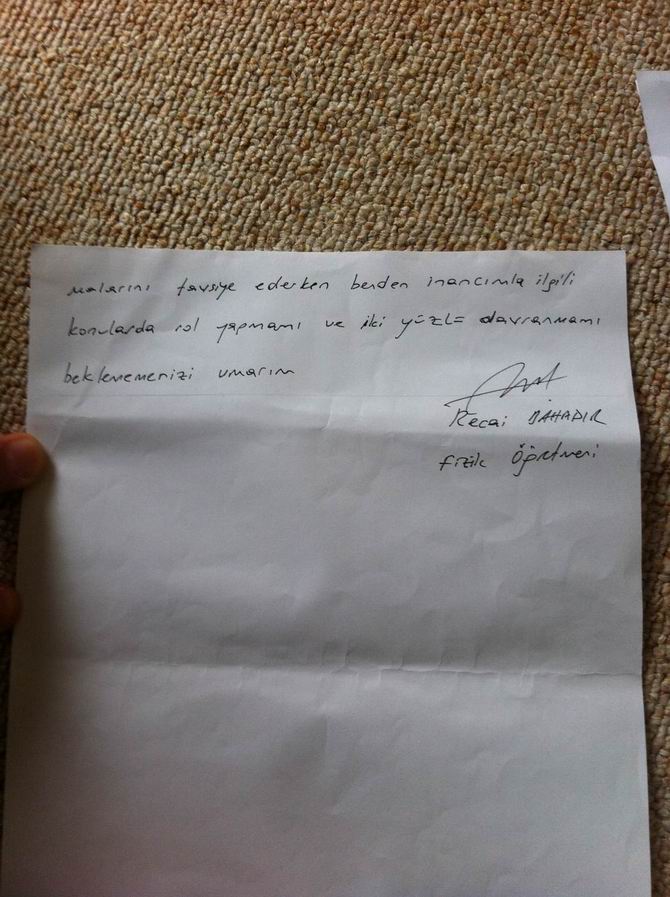 malarını tavsiye ederken benden inancımla ilgili
konularda rol yapmamı ve iki yüzlü davranmamı
beklememenizi umarım
Recai BAHADIR
fizik Öğretmeni